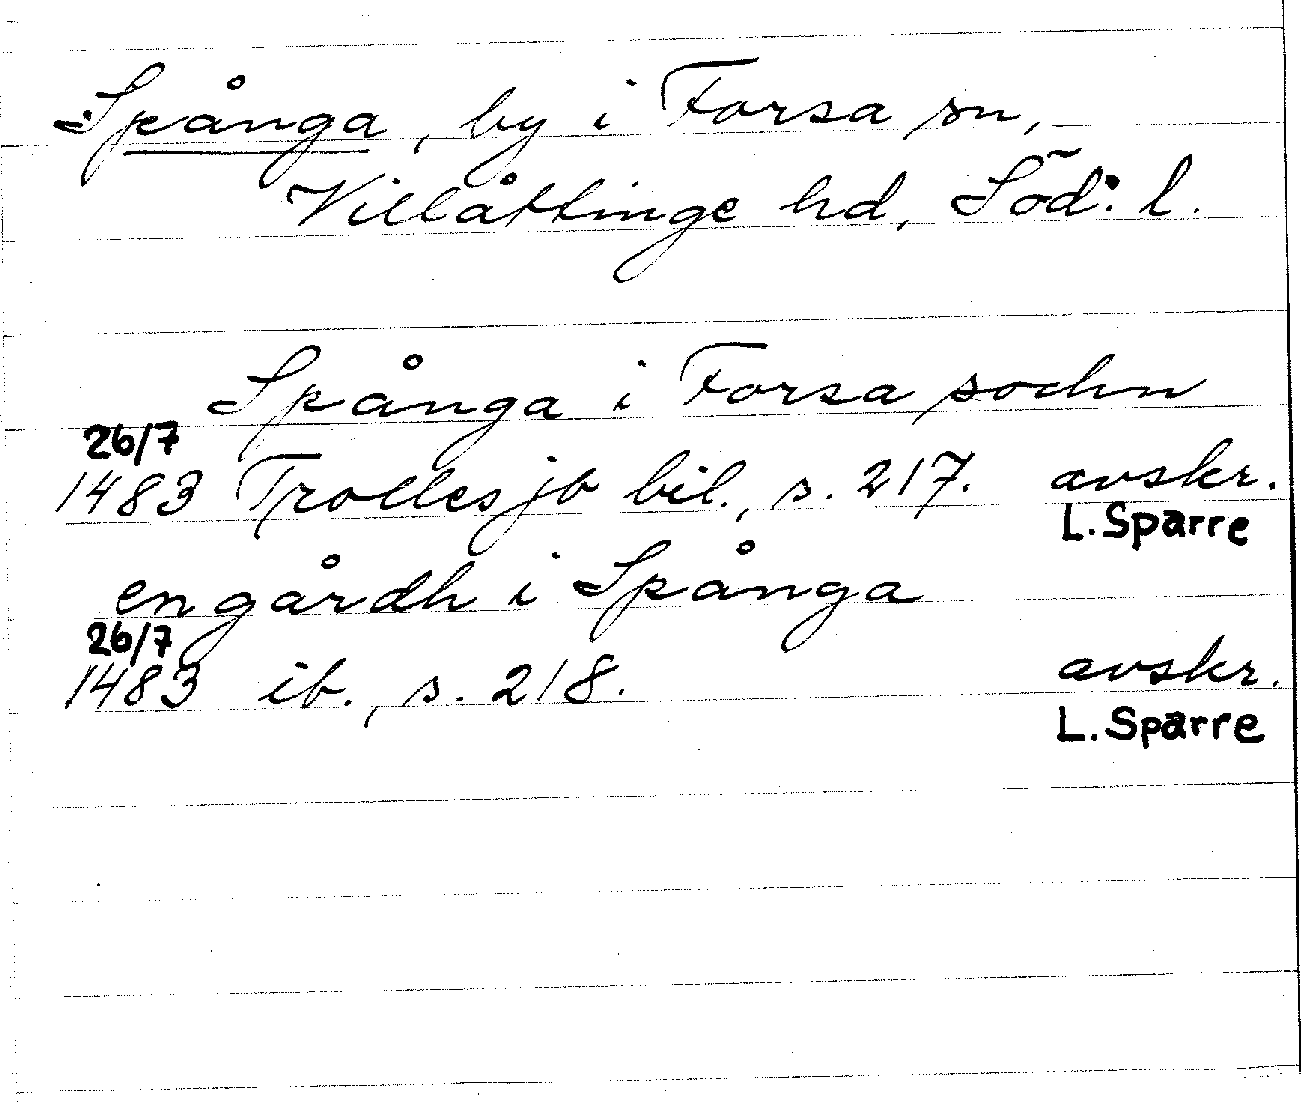 Spånga, by i Forsa sn,
Villåttinge hd, Söd: l.
Spånga i Forsa sochn
26/7
1483 Trolles jb bil., s. 217. avskr.
L. Sparre
en gårdh i Spånga
26/7
1483 ib., s. 218. avskr.
L. Sparre